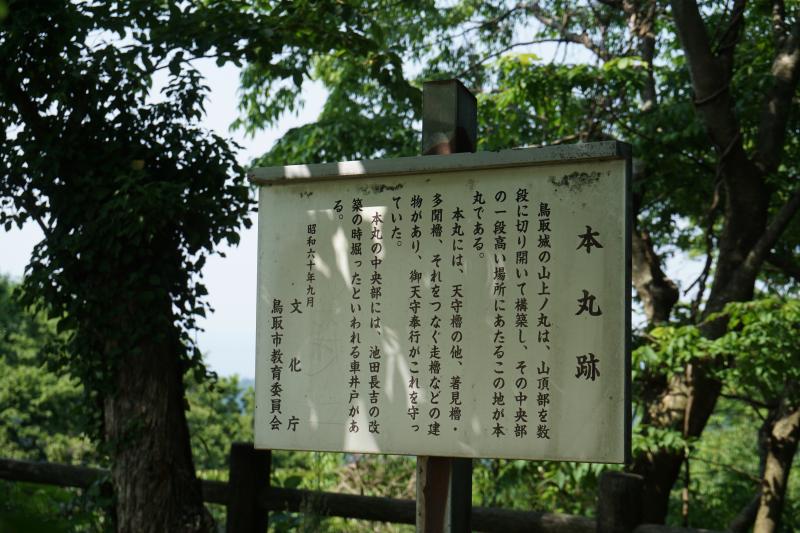 本丸跡
鳥取城の山上ノ丸は、山頂部を数
段に切り開いて構築し、その中央部
の一段高い場所にあたるこの地が本
丸である。
本丸には、天守櫓の他、着見櫓・
多聞櫓、それをつなぐ走櫓などの建
物があり、御天守奉行がこれを守っ
ていた。
本丸の中央部には、池田長吉の改
築の時掘ったといわれる車井戸があ
る。
昭和六十年九月
文化庁
鳥取市教育委員会